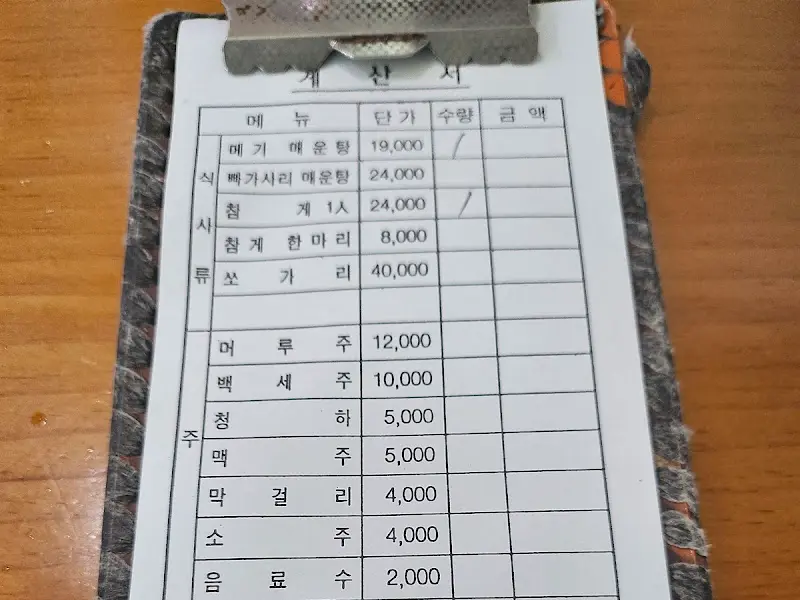 계 산 서
메 뉴 단 가 수량 금 액
식 사 류
메 기 매 운 탕 19,000 /
빠가사리 매운탕 24,000
참 게 1人 24,000 /
참 게 한 마 리 8,000
쏘 가 리 40,000
주
머 루 주 12,000
백 세 주 10,000
청 하 5,000
맥 주 5,000
막 걸 리 4,000
소 주 4,000
음 료 수 2,000